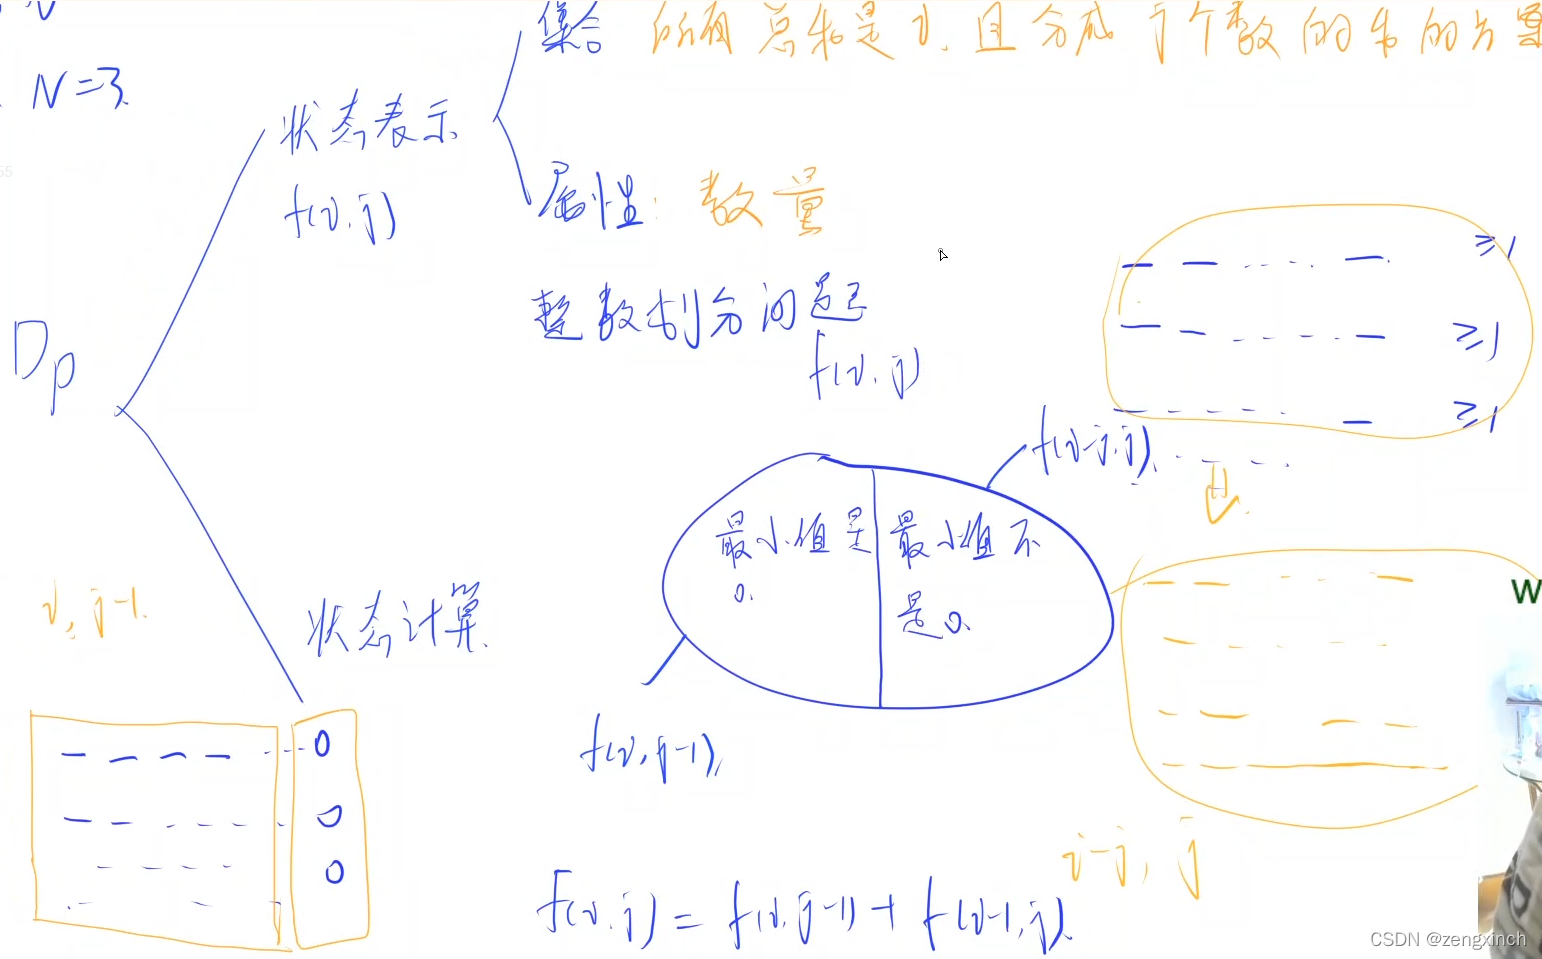 集合 所有总和是i,且分成j个数的和的方案
N=3
状态表示
f(i,j)
属性:数量
≥1
整数划分问题
f(i,j)
≥1
Dp
≥1
f(i-j,j)
最小值是
0.
最小值不
是0.
w
i,j-1.
状态计算
f(i,j-1),
0
0
0
i-j, j
f(i,j)=f(i,j-1)+f(i-1,j)
CSDN @zengxinch